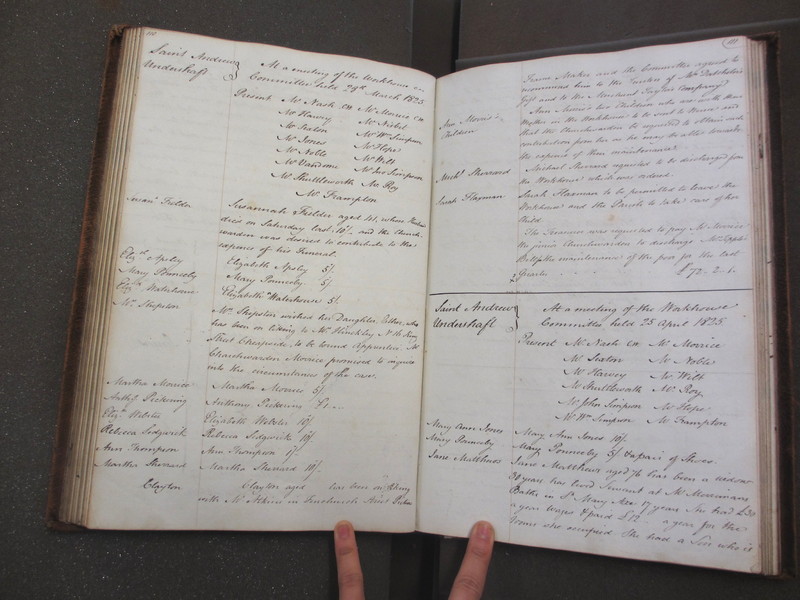 110
Saint Andrew
Undershaft
At a meeting of the Workhouse
Committee held 29th March 1825
Present Mr Nash CW Mr Morrice CW
Mr Harvey Mr Nisbet
Mr Seaton Mr Wm Simpson
Mr Jones Mr Hope
Mr Noble Mr Wilt
Mr Vandome Mr Jno Simpson
Mr Shuttleworth Mr Roy
Mr Frampton
Susanah Fielder Susannah Fielder aged 41, whose Husband
died on Saturday last 10/- and the Church
warden was desired to contribute to the
expences of his Funeral.
Elizh Apsley Elizabeth Apsley 5/.
Mary Ponneby Mary Ponneby 5/.
Elizth Waterhouse Elizabeth Waterhouse 5/.
Mr Shepston Mr Shepston wished his Daughter, Esther, who
has been on liking to Mr Hinckley No 16 King
Street Cheapside, to be bound Apprentice. Mr
Churchwarden Morrice promised to enquire
into the circumstances of the case.
Martha Morrice Martha Morris 5/.
Anthy Pickering Anthony Pickering £1..-
Elizth Webster Elizabeth Webster 10/.
Rebecca Sedgwick Rebecca Sidgwick 10/.
Ann Thompson Ann Thompson
Martha Sherrard Martha Sherrard 10/.
Clayton Clayton aged has been on liking
with Mr Atkins in Fenchurch Street
111
Frame Maker and the Committee agreed to
recommend him to the Trustees of Mr Datchelor's
Gift and to the Merchant Taylors Company
Ann Morris's Ann Morris's two Children who are with their
Children Mother in the Workhouse to be sent to Nurse and
that the Churchwarden be requested to obtain such
contribution from her as he may be able towards
the expence of their maintenance
Michl Sherrard Michael Sherrard requested to be discharged from
the Workhouse which was ordered.
Sarah Flaxman Sarah Flaxman to be permitted to leave the
Workhouse and the Parish to take care of her
Child.
The Treasurer was requested to pay Mr Morrice
the junior Churchwarden to discharge Mr
Bill for the maintenance of the poor for the last
Quarter £72.2.6.
Saint Andrew
Undershaft
At a meeting of the Workhouse
Committee held 25 April 1825
Present Mr Nash CW Mr Morrice
Mr Seaton Mr Noble
Mr Harvey Mr Wilt
Mr Shuttleworth Mr Roy
Mr John Simpson Mr Hope
Mr Wm Simpson Mr Frampton
Mary Ann Jones Mary Ann Jones 10/.
Mary Ponneby Mary Ponneby 5/ & a pair of Shoes.
Jane Matthews Jane Matthews aged 76 has been a widow
30 years has lived Servant at Mr Merrimans
Baths in St Mary Axe 17 years She had £30
a year wages & paid £12 a year for the
Rooms she occupied She had a Son who is